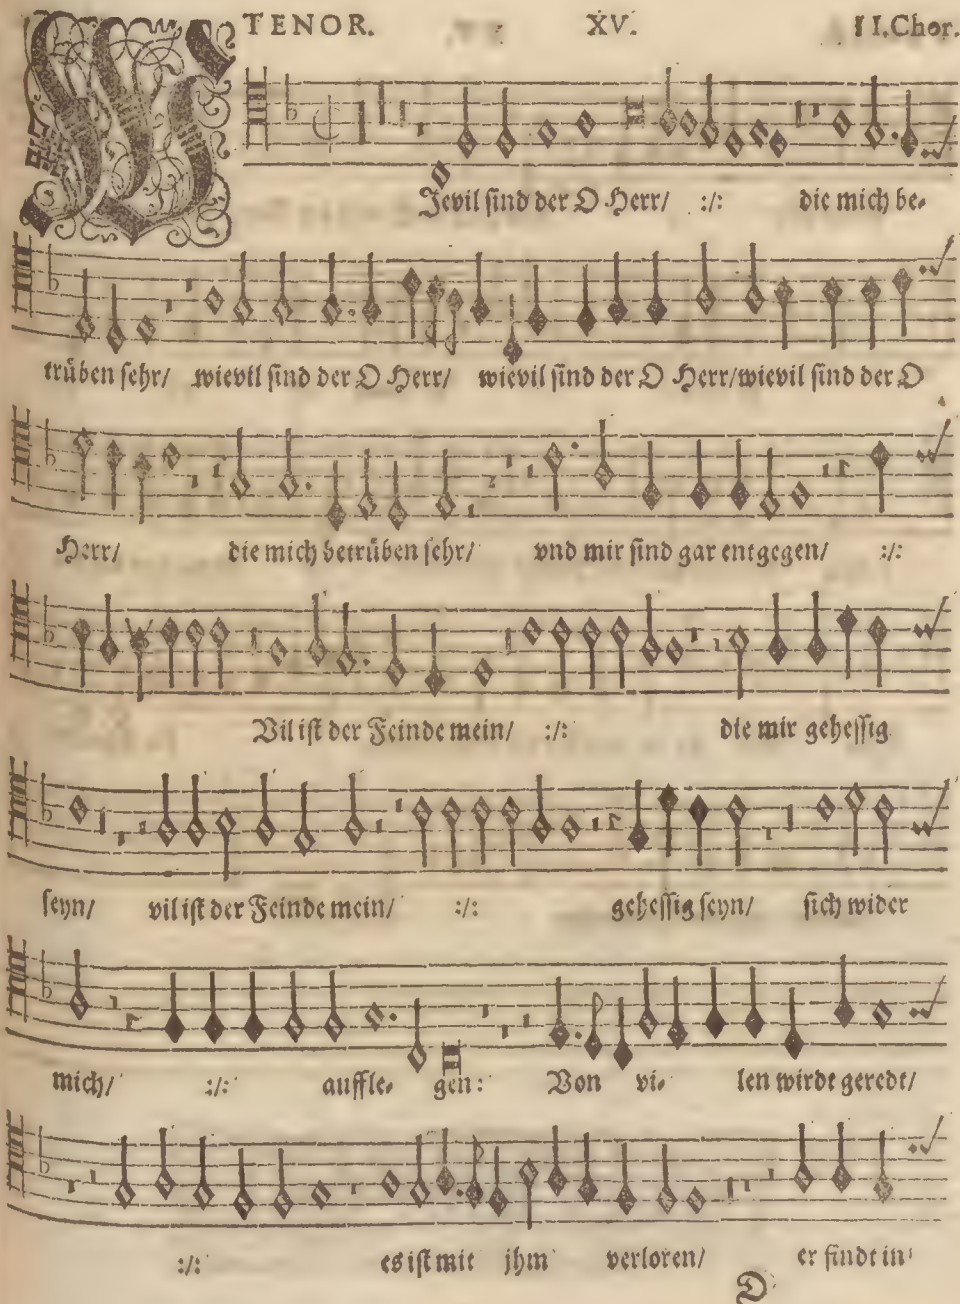 TENOR. XV. II.Chor.
WJevil sind der O Herr/ :/: die mich be-
trüben sehr/ wievil sind der O Herr/ wievil sind der O Herr/ wievil sind der O
Herr/ die mich betrüben sehr/ vnd mir sind gar entgegen/ :/:
Vil ist der Feinde mein/ :/: die mir gehessig
seyn/ vil ist der Feinde mein/ :/: gehessig seyn/ sich wider
mich/ :/: auffle- gen: Von vi- len wirdt geredt/
:/: es ist mit jhm verloren/ er findt in
D